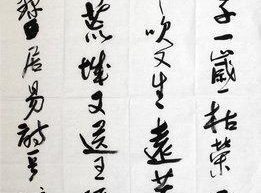 一歲一枯榮
吹又生遠芳
荒城又送王
居易詩